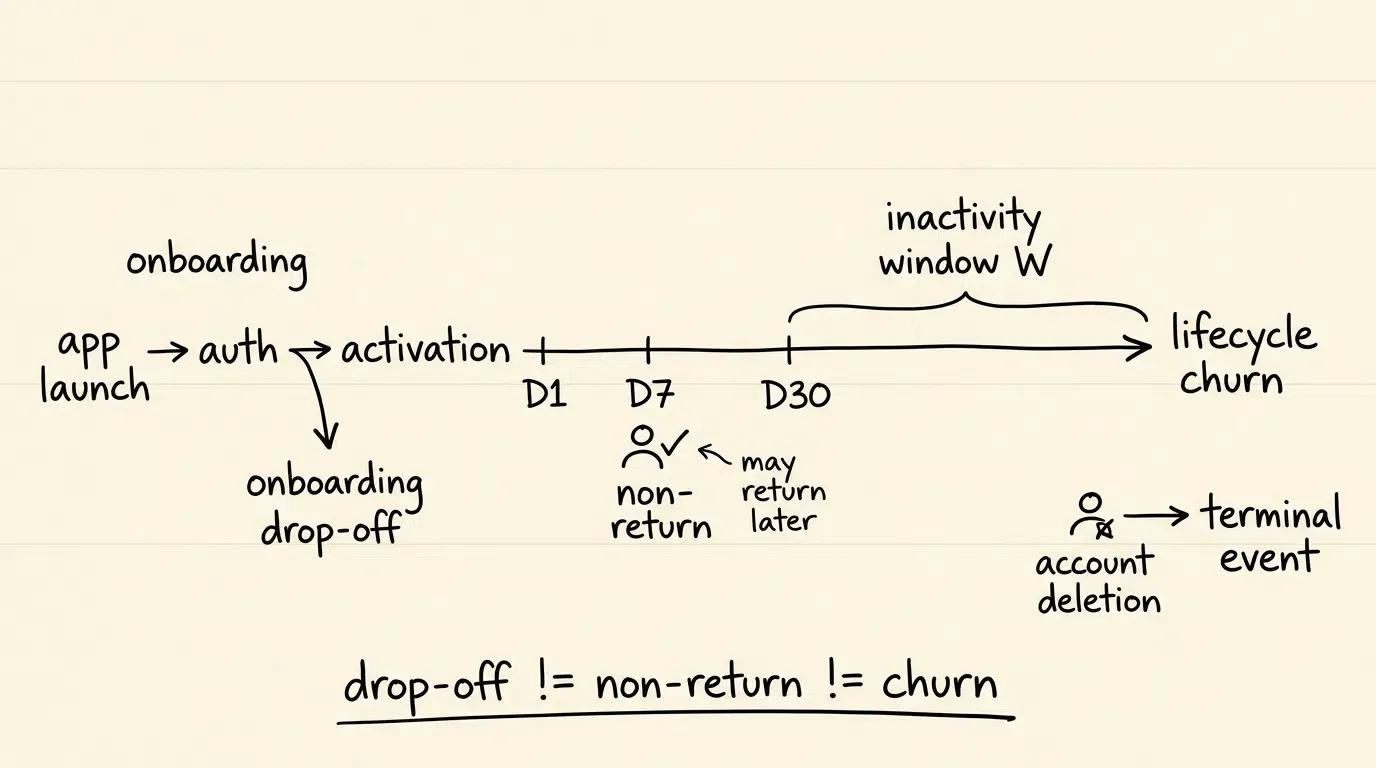 onboarding
app
launch
auth
activation
D1
D7
D30
inactivity
window W
lifecycle
churn
onboarding
drop-off
non-
return
may
return
later
account
deletion
terminal
event
drop-off != non-return != churn